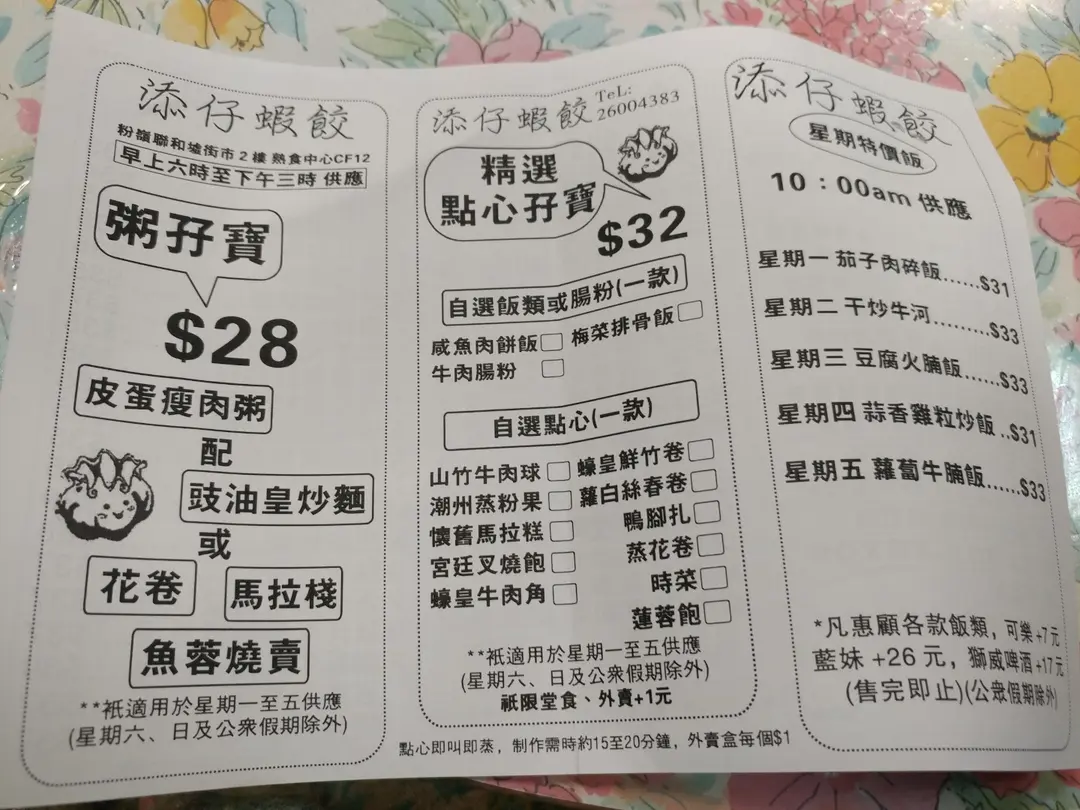 添仔蝦餃
粉嶺聯和墟街市2樓 熟食中心CF12
早上六時至下午三時 供應
粥孖寶
$28
皮蛋瘦肉粥
配
豉油皇炒麵
或
花卷 馬拉棧
魚蓉燒賣
**祇適用於星期一至五供應
(星期六、日及公衆假期除外)
添仔蝦餃
TeL:
26004383
精選
點心孖寶
$32
自選飯類或腸粉(一款)
咸魚肉餅飯 梅菜排骨飯
牛肉腸粉
自選點心(一款)
山竹牛肉球 蠔皇鮮竹卷
潮州蒸粉果 蘿白絲春卷
懷舊馬拉糕 鴨腳扎
宮廷叉燒飽 蒸花卷
蠔皇牛肉角 時菜
蓮蓉飽
**祇適用於星期一至五供應
(星期六、日及公衆假期除外)
祇限堂食、外賣+1元
點心即叫即蒸，制作需時約15至20分鐘，外賣盒每個$1
添仔蝦餃
星期特價飯
10：00am 供應
星期一 茄子肉碎飯......$31
星期二 干炒牛河.........$33
星期三 豆腐火腩飯......$33
星期四 蒜香雞粒炒飯 ..$31
星期五 蘿蔔牛腩飯......$33
*凡惠顧各款飯類，可樂+7元
藍妹 +26 元，獅威啤酒 +17元
(售完即止)(公眾假期除外)